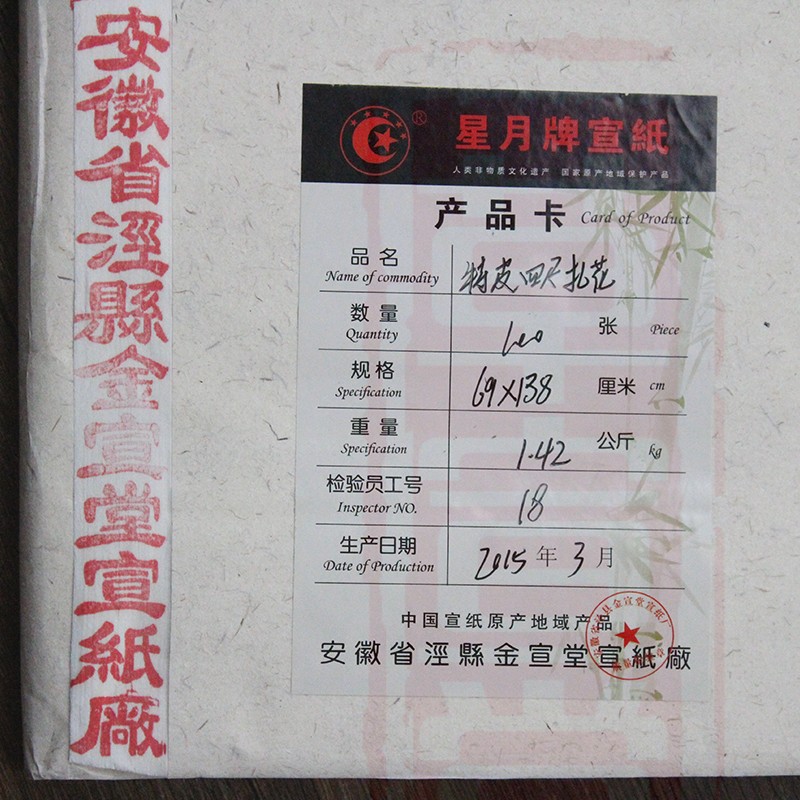 安徽省涇縣金宣堂宣紙廠
®
星月牌宣紙
人类非物质文化遗产 国家原产地域保护产品
产品卡 Card of Product
品名 特皮四尺扎花
Name of commodity
数量 100 张 Piece
Quantity
规格 69×138 厘米 cm
Specification
重量 1.42 公斤 kg
Specification
检验员工号 18
Inspector NO.
生产日期 2015年3月
Date of Production
中国宣纸原产地域产品
安徽省涇縣金宣堂宣紙廠